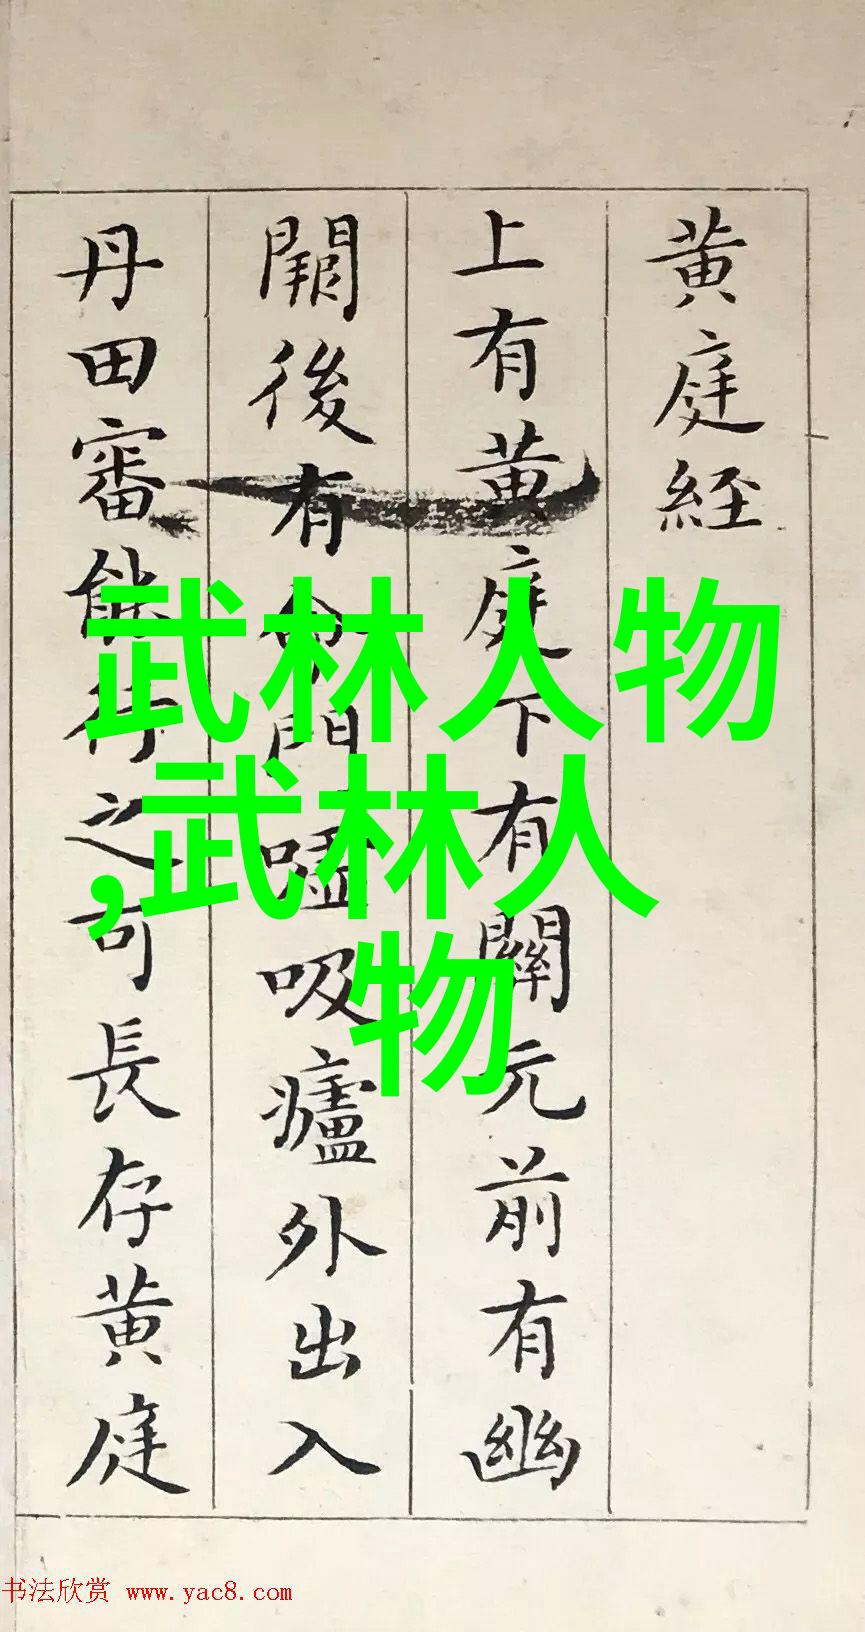 黄庭経
上有黄庭下有關元前有幽
闕後有命門噓吸廬外出入
丹田審能行之可長存黄庭
武林人物
,武林人
物
书法欣赏 www.yac8.com